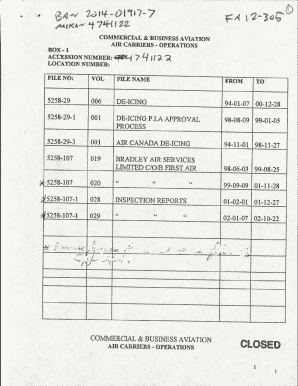 BAN 2014-01917-7
MIKAN 4741122
FA 12-305
1
COMMERCIAL & BUSINESS AVIATION
AIR CARRIERS - OPERATIONS
BOX - 1
ACCESSION NUMBER: 4741122
LOCATION NUMBER:
FILE NO: VOL FILE NAME FROM TO
5258-29 006 DE-ICING 94-01-07 00-12-28
5258-29-1 001 DE-ICING P.I.A APPROVAL PROCESS 98-08-09 99-01-05
5258-29-3 001 AIR CANADA DE-ICING 94-11-01 98-11-27
5258-107 019 BRADLEY AIR SERVICES
LIMITED C/O/B FIRST AIR 98-06-03 99-08-25
*5258-107 020 " " " 99-09-09 01-11-28
*5258-107-1 028 INSPECTION REPORTS 01-02-01 01-12-27
*5258-107-1 029 " " 02-01-07 02-10-22
COMMERCIAL & BUSINESS AVIATION
AIR CARRIERS - OPERATIONS
CLOSED